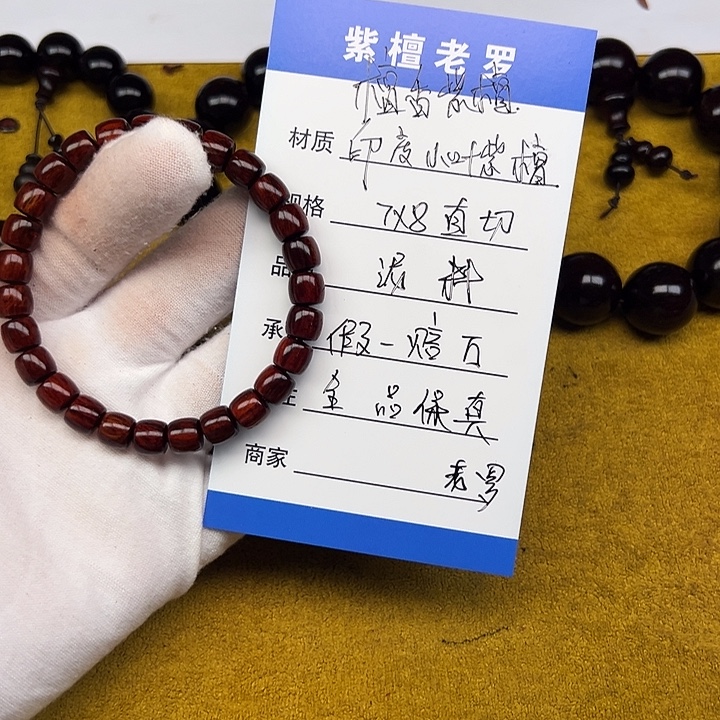 紫檀老罗
檀香紫檀
材质 印度小叶紫檀
规格 7X8直切
品 泥料
承 假一赔万
主 全品保真
商家 老罗